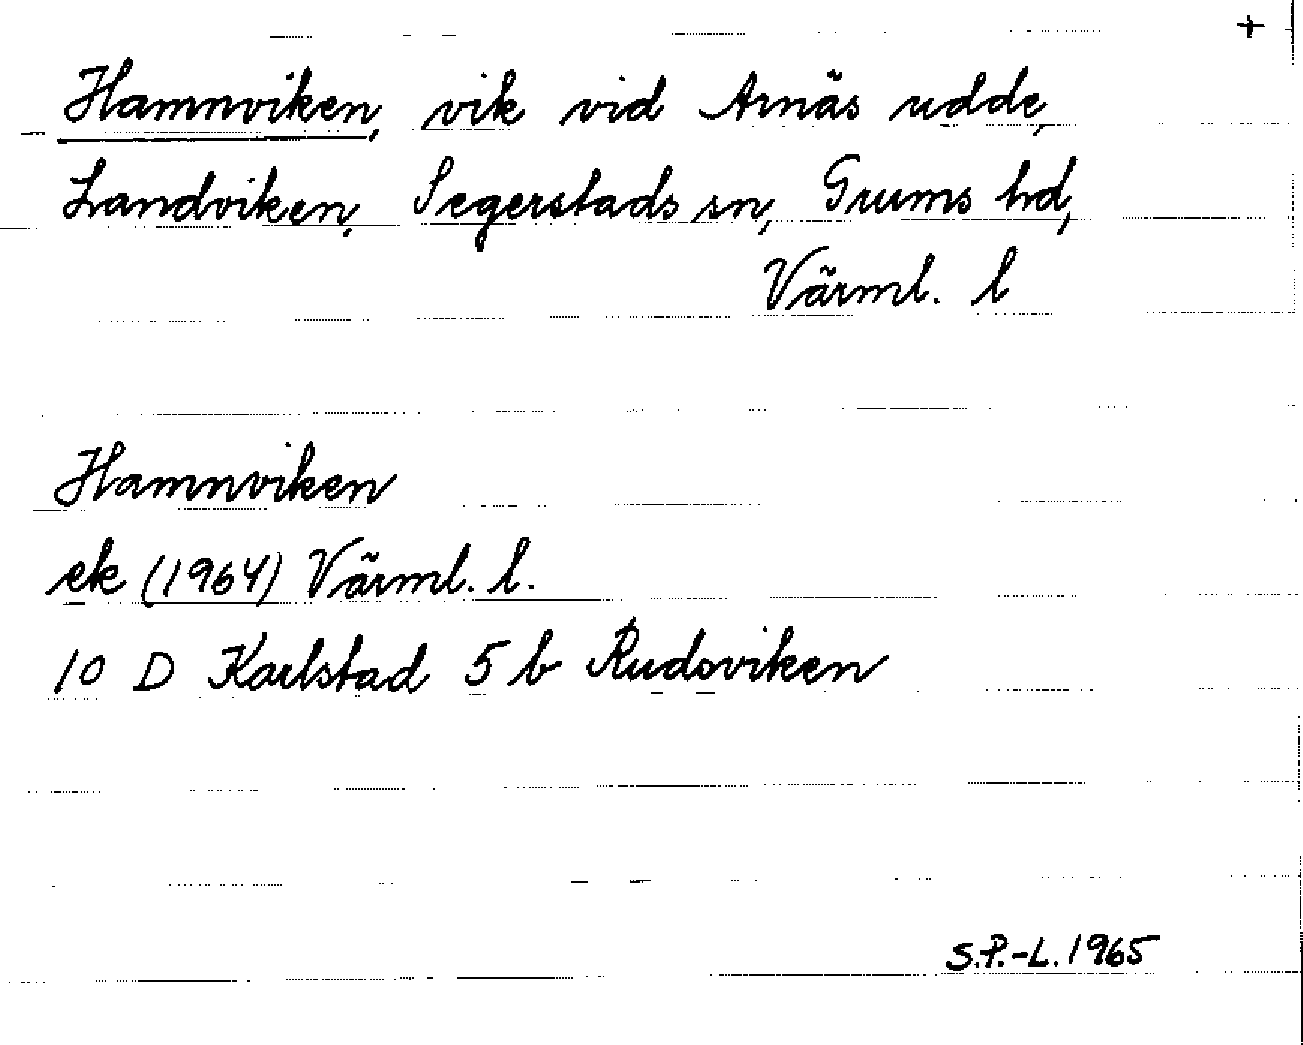 +
Hamnviken, vik vid Arnäs udde,
Landviken, Segerstads sn, Grums hd,
Värml. l
Hamnviken
ek (1964) Värml. l.
10 D Karlstad 5 b Rudsviken
S.P.-L. 1965